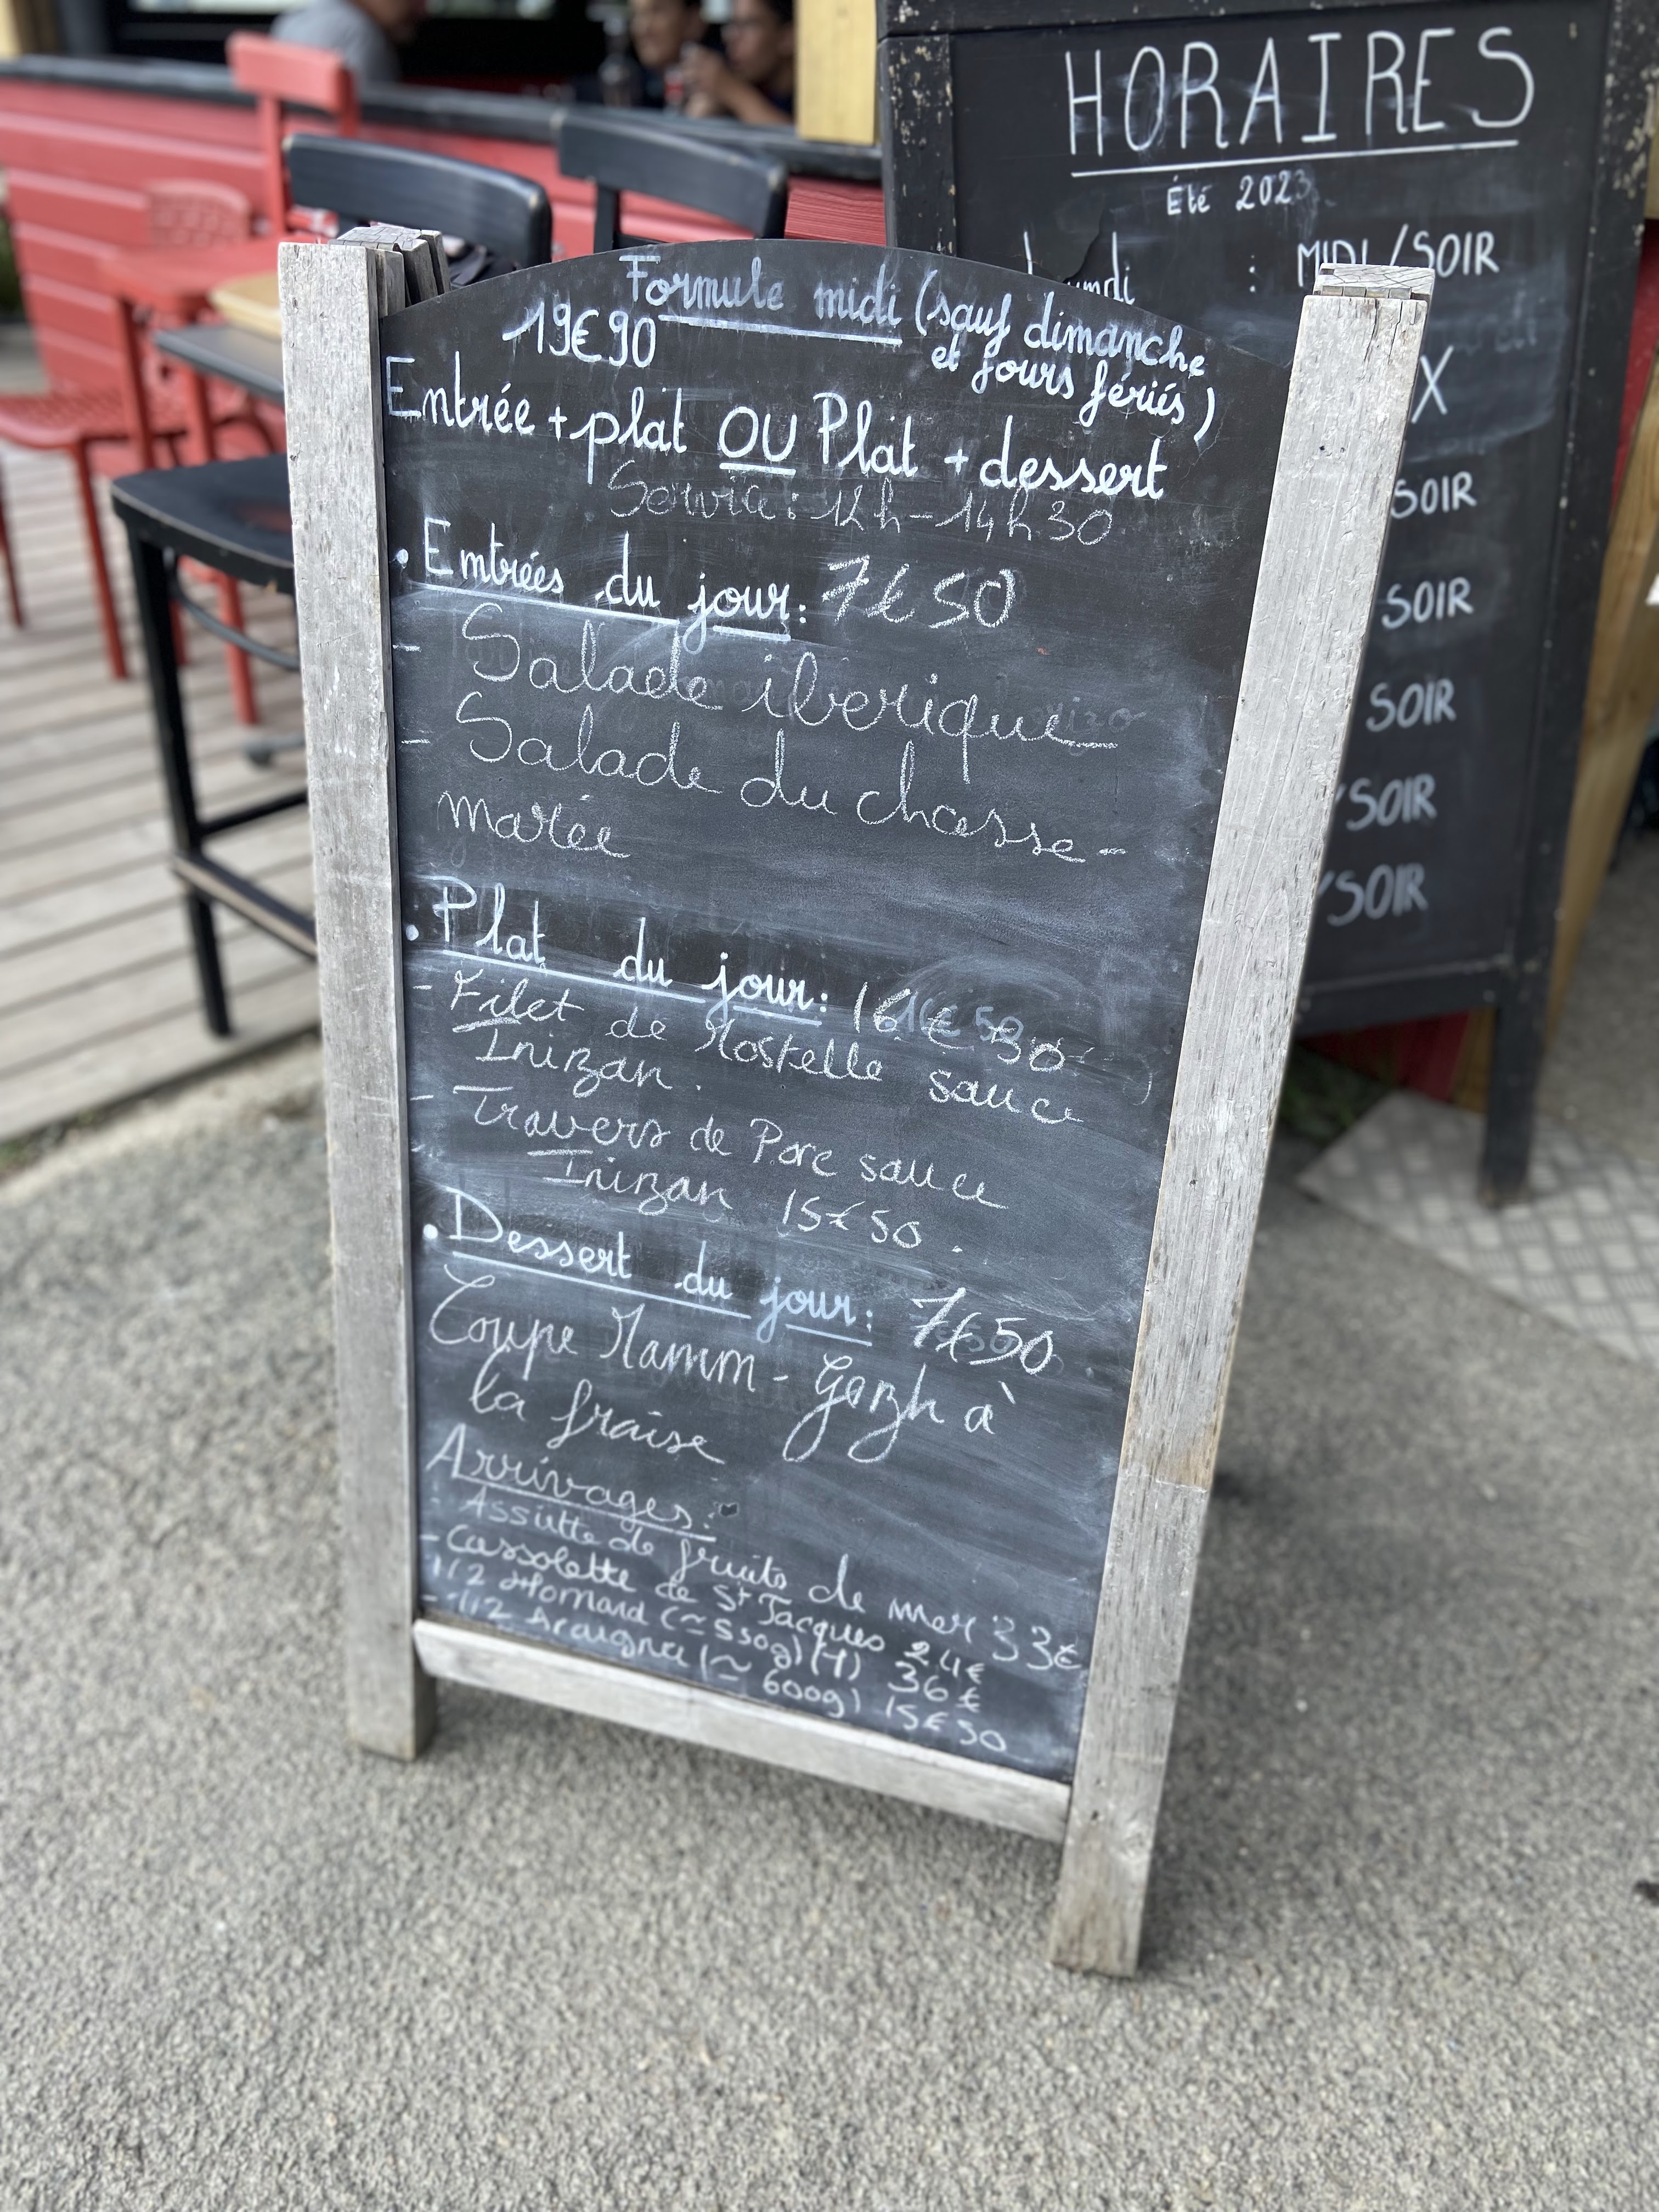 Formule midi (sauf dimanche
19€90 et jours fériés)
Entrée + plat OU Plat + dessert
Service : 12h - 14h30
• Entrées du jour : 7€50
- Salade iberique
- Salade du chasse-
marée
• Plat du jour : 16€50
- Filet de Mostelle sauce
Inizan.
- Travers de Porc sauce
Inizan 15€50.
• Dessert du jour : 7€50
Coupe Mamm-Gozh à
la fraise
Arrivages :
- Assiette de fruits de mer 33€
- Cassolette de St Jacques 24€
1/2 Homard (~550g) 36€
- 1/2 Araignée (~600g) 15€50
HORAIRES
Été 2023
Lundi : MIDI/SOIR
X
SOIR
SOIR
SOIR
/SOIR
/SOIR